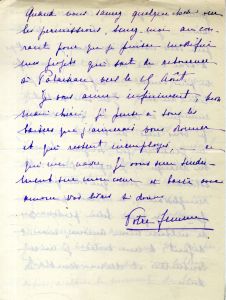 Quand vous saurez quelque chose sur
les permissions, tenez-moi au cou-
rant pour que je puisse modifier
mes projets qui sont de retourner
à vers le 15 Août.
Je vous aime infiniment, mon
chéri, je pense à tous les
baisers que j'aimerais vous donner
et qui restent inemployés, ce
qui me navre. Je vous serre tendre-
ment sur mon cœur et baise avec
amour vos yeux si doux.
Votre femme